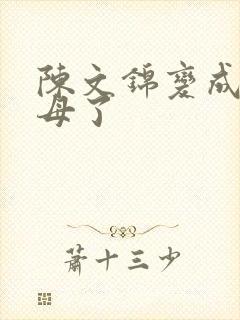 陳文錦變成
母了
蕭十三少